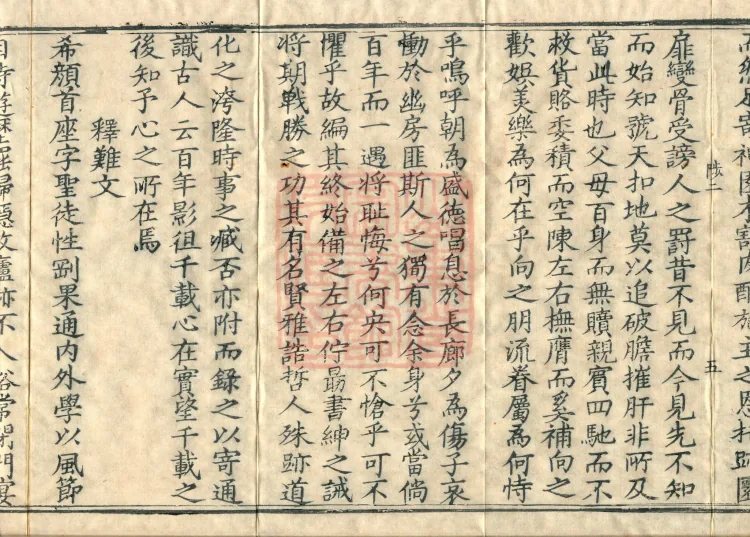 陟二
五
扉變骨受謗人之罸昔不見而今見先不知
而始知號天扣地莫以追破膽摧肝非所及
當此時也父母百身而無贖親賓四馳而不
救貨賂委積而空陳左右撫膺而奚補向之
歡娯美樂為何在乎向之朋流眷屬為何恃
乎嗚呼朝為盛德唱息於長廊夕為傷子哀
慟於幽房匪斯人之獨有念余身兮或當倘
百年而一遇將耻悔兮何央可不愴乎可不
懼乎故編其終始備之左右佇勗書紳之誡
将期戰勝之功其有名賢雅誥哲人殊跡道
化之洿隆時事之臧否亦附而錄之以寄通
識古人云百年影徂千載心在實望千載之
後知予心之所在焉
釋難文
希顔首座字聖徒性剛果通内外學以風節